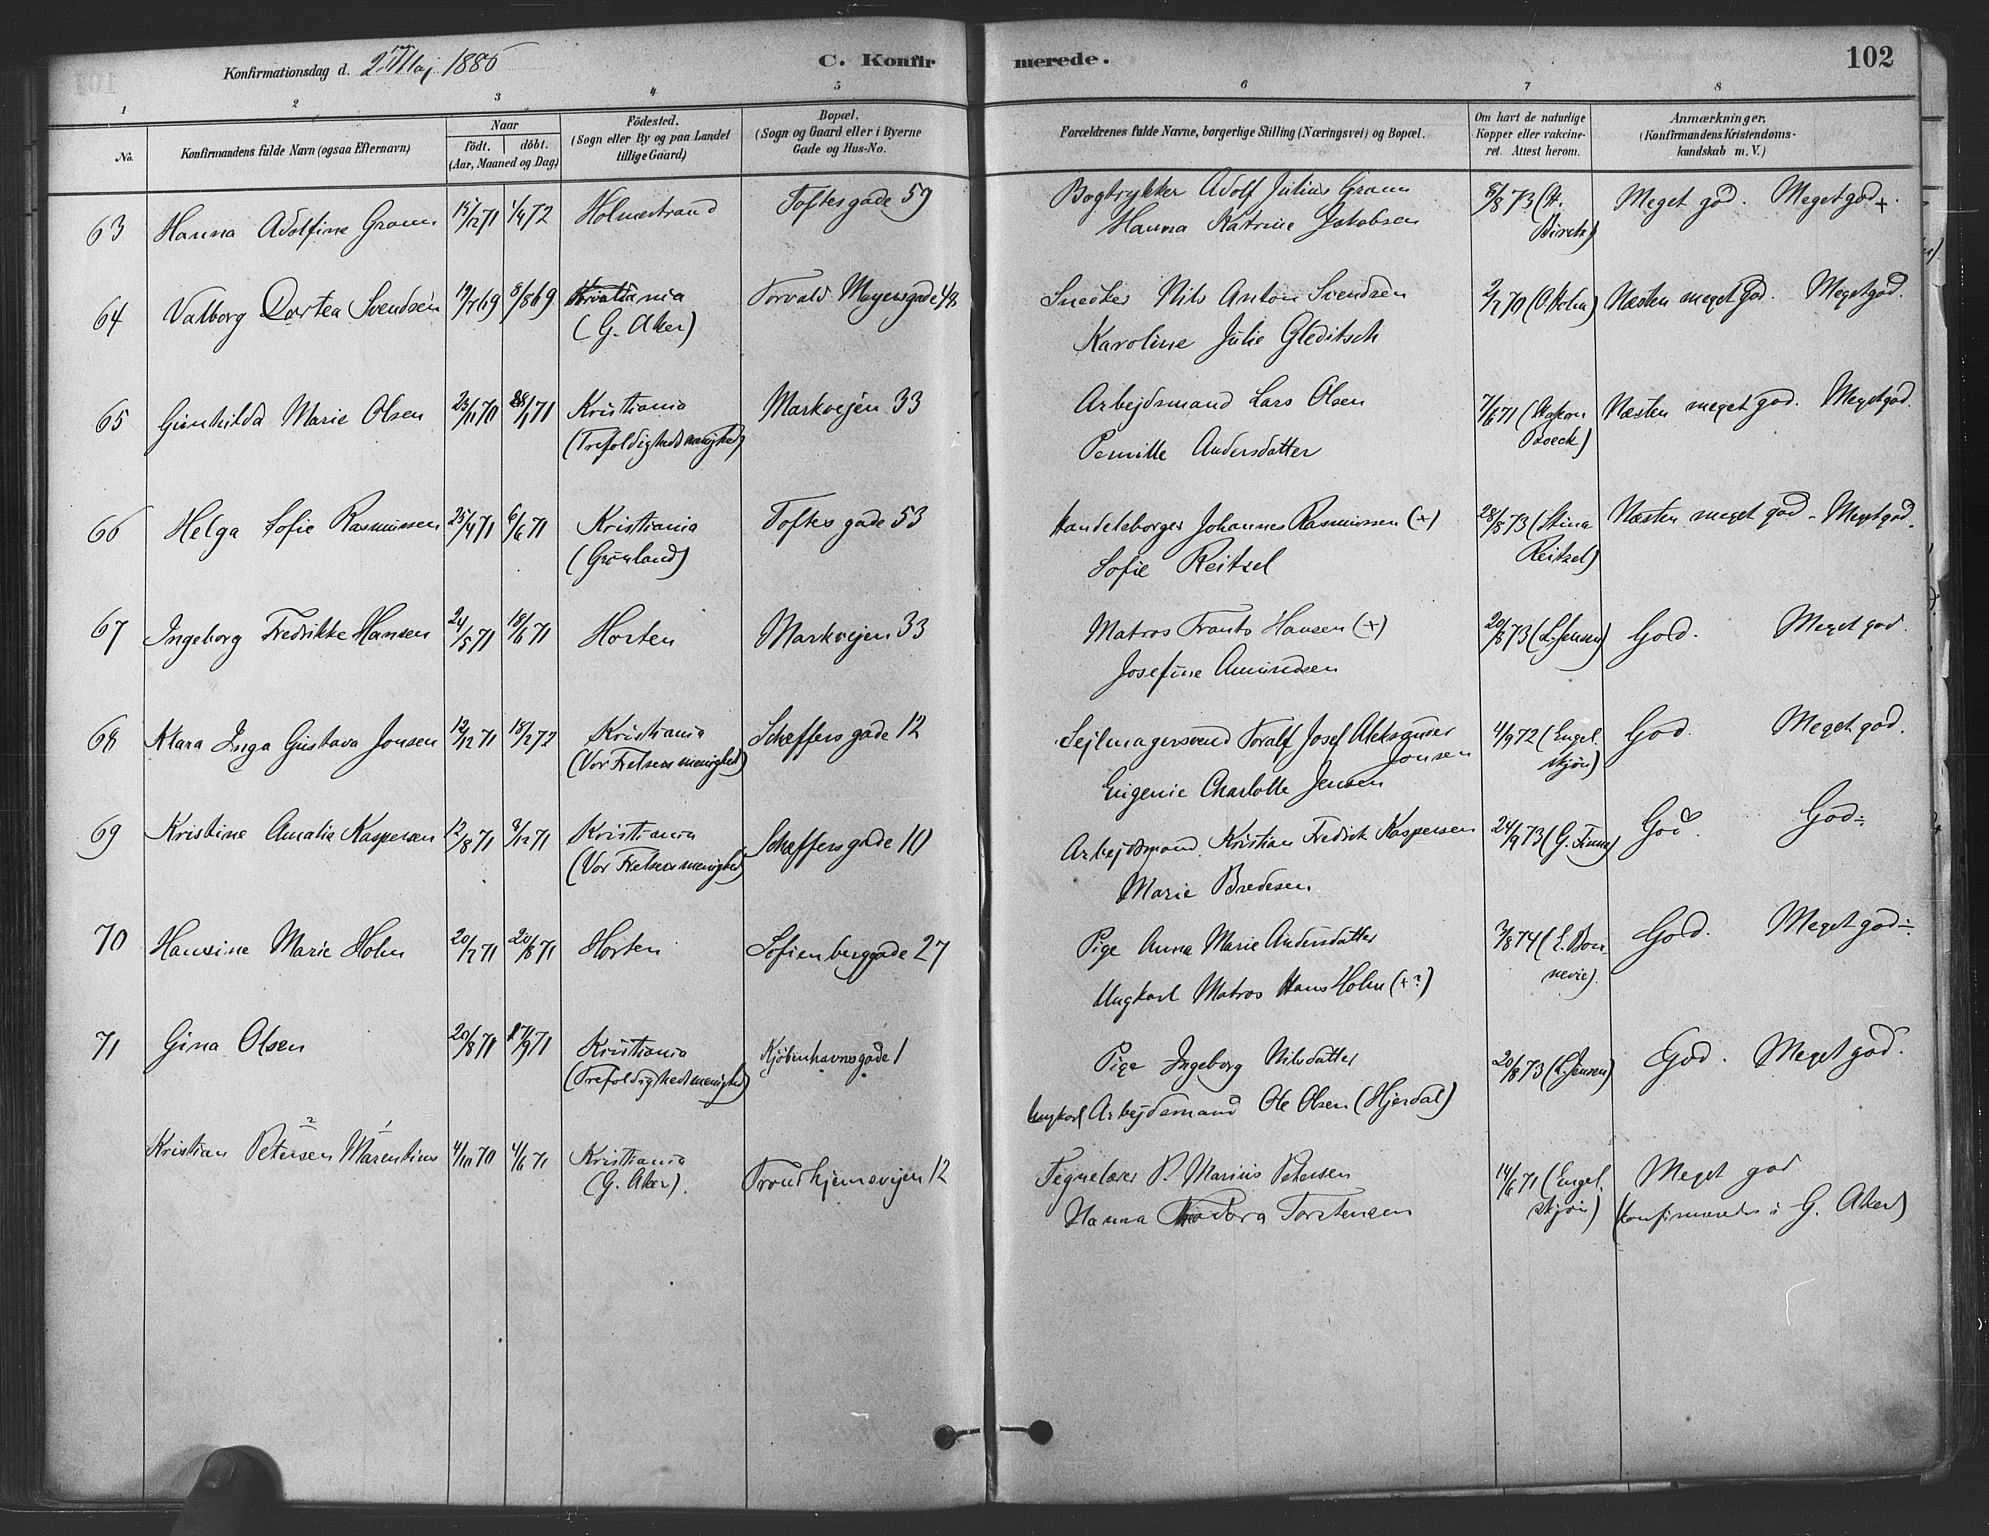 Konfirmationsdag d. 2 Maj 1886
C. Konfirmerede.
102
1 2 3 4 5 6 7 8
No.
Konfirmandens fulde Navn (ogsaa Efternavn)
Naar
födt. döbt.
(Aar, Maaned og Dag)
Födested.
(Sogn eller By og paa Landet
tillige Gaard)
Bopæl.
(Sogn og Gaard eller i Byerne
Gade og Hus-No.
Forældrenes fulde Navne, borgerlige Stilling (Næringsvei) og Bopæl.
Om havt de naturlige
Kopper eller vakcine-
ret. Attest herom.
Anmærkninger.
(Konfirmandens Kristendoms-
kundskab m. V.)
63 Hanna Adolfine Gram 15/12 71 1/4 72 Holmestrand Toftesgade 59 Bogtrykker Adolf Julius Gram 8/8 73 (H. Meget god. Meget god+.
Hanna Katrine Jakobsen Birch)
64 Valborg Dortea Svendsen 19/7 69 8/8 69 Kristiania Torvald Meyersgade 48 Snedker Nils Anton Svendsen 2/7 70 (O. Holm) Næsten meget god. Meget god.
(G. Aker) Karoline Julie Gleditsch
65 Gunhilda Marie Olsen 23/11 70 28/1 71 Kristiania Markvejen 33 Arbejdsmand Lars Olsen 7/6 71 (Hakon Næsten meget god. Meget god.
(Trefoldighedsmenighed) Pernille Andersdatter Boeck)
66 Helga Sofie Rasmussen 25/4 71 6/6 71 Kristiania Toftes gade 53 Handelsborger Johannes Rasmussen (+) 28/8 73 (Stina Næsten meget god - Meget god.
(Grønland) Sofie Reitzel Reitzel)
67 Ingeborg Fredrikke Hansen 24/5 71 18/6 71 Horten Markvejen 33 Matros Frants Hansen (+) 20/8 73 (L. Jensen) God. Meget god.
Josefine Amundsen
68 Klara Inga Gustava Jonsen 12/12 71 18/2 72 Kristiania Schæffers gade 12 Sejlmagersvend Toralf Josef Aleksander 4/9 72 (Engel- God. Meget god.
(Vor Frelsers menighed) Jonsen skjøn)
Eugenie Charlotte Jensen
69 Kristine Amalia Kaspersen 12/8 71 3/12 71 Kristiania Schæffersgade 10 Arbejdsmand Kristian Fredrik Kaspersen 24/9 73 (G. Finne) God. God÷
(Vor Frelsers menighed) Marie Bredesen
70 Hansine Marie Holm 20/7 71 20/8 71 Horten Sofienberggade 27 Pige Anna Marie Andersdatter 3/8 74 (E. Bon- God. Meget god÷.
Ungkarl Matros Hans Holm (+?) nevie).
71 Gina Olsen 20/8 71 17/9 71 Kristiania Kjøbenhavnsgade 1 Pige Ingeborg Nilsdatter 20/8 73 (L. Jensen) God. Meget god.
(Trefoldighedsmenighed) Ungkarl Arbejdsmand Ole Olsen (Hjerdal)
2 1
Kristian Petersen Marentius 4/10 70 4/6 71 Kristiania Trondhjemsvejen 12 Tegnelærer P. Marius Petersen 14/6 71 (Engel- Meget god
(G. Aker). Hanna Teodora Torstensen skjøn) (konfirmeredes i G. Aker)